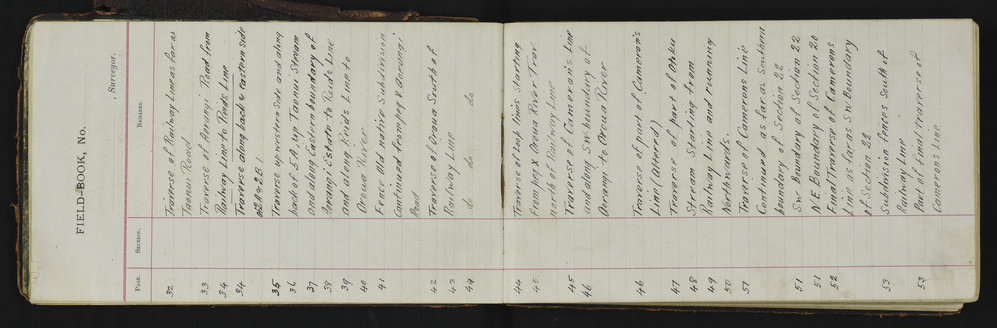 FIELD-BOOK, No.
, Surveyor.
PAGE. SECTION. REMARKS.
32 Traverse of Railway Line as far as
Taonui Road
33 Traverse of Aorangi Road from
34 Railway Line to Reids Line
34 Traverse along back & eastern side
of 2A & 2B1
35 Traverse up western side and along
36 back of 5A by Taonui Stream
37 and along Eastern boundary of
38 Aorangi Estate to Reids Line
39 and along Reids Line to
40 Oroua River
41 Fence and native Subdivision
continued from pag Aorangi
Road
42 Traverse of Oroua South of
43 Railway Line
44 do do do
44 Traverse of top line starting
45 from peg X Oroua River Trav
north of Railway Line
45 Traverse of Cameron's Line
46 and along SW boundary of
Aorangi to Oroua River
46 Traverse of part of Cameron's
Line (altered)
47 Traverse of part of Otoku
48 Stream Starting from
49 Railway Line and running
50 Northwards.
51 Traverse of Camerons Line
Continued as far as Southern
boundary of Section 22
51 SW Boundary of Section 22
51 N E Boundary of Section 20
52 Final Traverse of Camerons
Line as far as SW Boundary
of Section 22
53 Subdivision fences South of
Railway Line
53 Part of final traverse of
Camerons Line